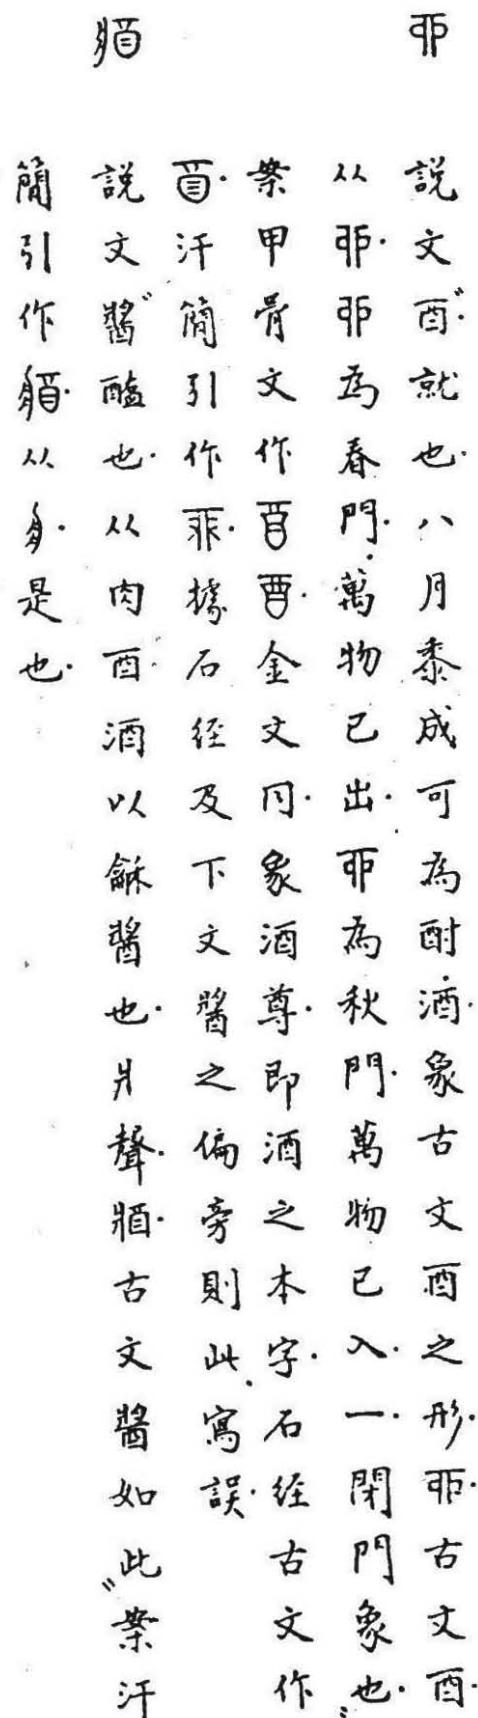 丣
說文“酉.就也.八月黍成可為酎酒.象古文酉之形.丣.古文酉.
从丣.丣為春門.萬物已出.丣為秋門.萬物已入.一.閉門象也.”
案甲骨文作金文同.象酒尊.即酒之本字.石經古文作
.汗簡引作.據石經及下文醬之偏旁則此寫誤.
說文“醬醢也.从肉酉.酒以龢醬也.爿聲.𤖙.古文醬如此”案汗
簡引作.从.是也.